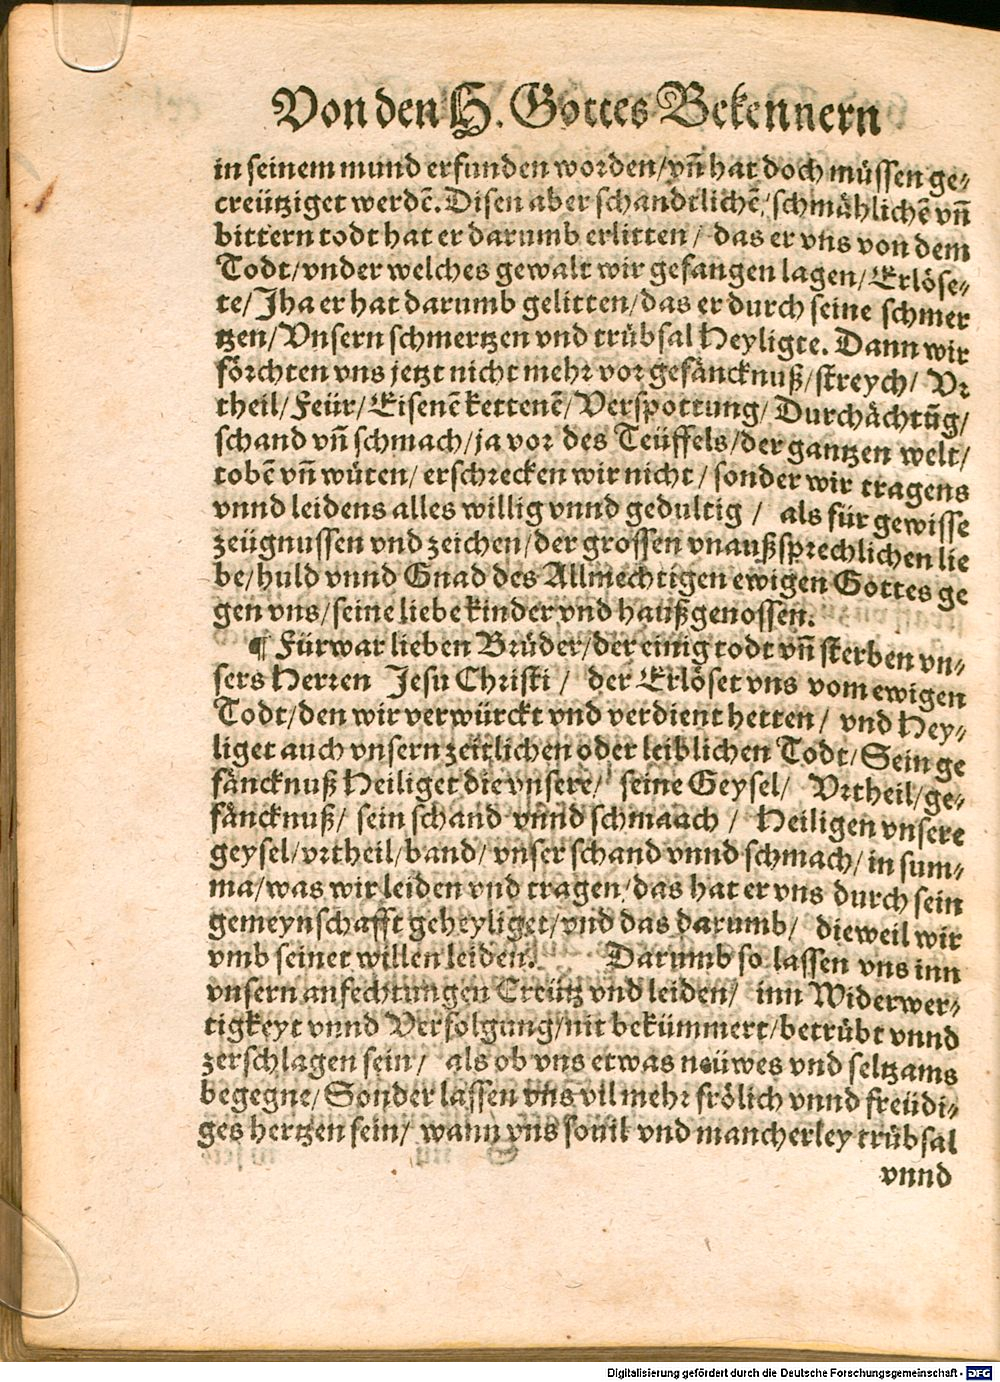 Von den H. Gottes Bekennern
in seinem mund erfunden worden/ vñ hat doch müssen ge⸗
creütziget werdẽ. Disen aber schandtlichẽ/ schmählichẽ vñ
bittern todt hat er darumb erlitten/ das er vns von dem
Todt/ vnder welches gewalt wir gefangen lagen/ Erlöse⸗
te/ Jha er hat darumb gelitten/ das er durch seine schmer
tzen/ Vnsern schmertzen vnd trübsal Heyligte. Dann wir
förchten vns jetzt nicht mehr vor gefäncknuß/ streych/ Vr
theil/ Feür/ Eisenẽ kettenẽ/ Verspottung/ Durchächtũg/
schand vñ schmach/ ja vor des Teüffels/ der gantzen welt/
tobẽ vñ wüten/ erschrecken wir nicht/ sonder wir tragens
vnnd leidens alles willig vnnd gedultig/ als für gewisse
zeügnussen vnd zeichen/ der grossen vnaußsprechlichen lie
be/ huld vnnd Gnad des Allmechtigen ewigen Gottes ge
gen vns/ seine liebe kinder vnd haußgenossen.
¶ Fürwar lieben Brüder/ der einig todt vñ sterben vn⸗
sers Herren Jesu Christi/ der Erlöset vns vom ewigen
Todt/ den wir verwürckt vnd verdient hetten/ vnd Hey⸗
liget auch vnsern zeitlichen oder leiblichen Todt/ Sein ge
fäncknuß Heiliget die vnsere/ seine Geysel/ Vrtheil/ ge⸗
fäncknuß/ sein schand vnnd schmaach/ Heiligen vnsere
geysel/ vrtheil/ band/ vnser schand vnnd schmach/ in sum⸗
ma/ was wir leiden vnd tragen/ das hat er vns durch sein
gemeynschafft geheyliget/ vnd das darumb/ dieweil wir
vmb seinet willen leiden. Darumb so lassen vns inn
vnsern anfechtungen Creütz vnd leiden/ inn Widerwer⸗
tigkeyt vnnd Verfolgung/ nit bekümmert/ betrübt vnnd
zerschlagen sein/ als ob vns etwas neüwes vnd seltzams
begegne/ Sonder lassen vns vil mehr frölich vnnd freüdi⸗
ges hertzen sein/ wann vns souil vnd mancherley trübsal
vnnd
Digitalisierung gefördert durch die Deutsche Forschungsgemeinschaft - DFG